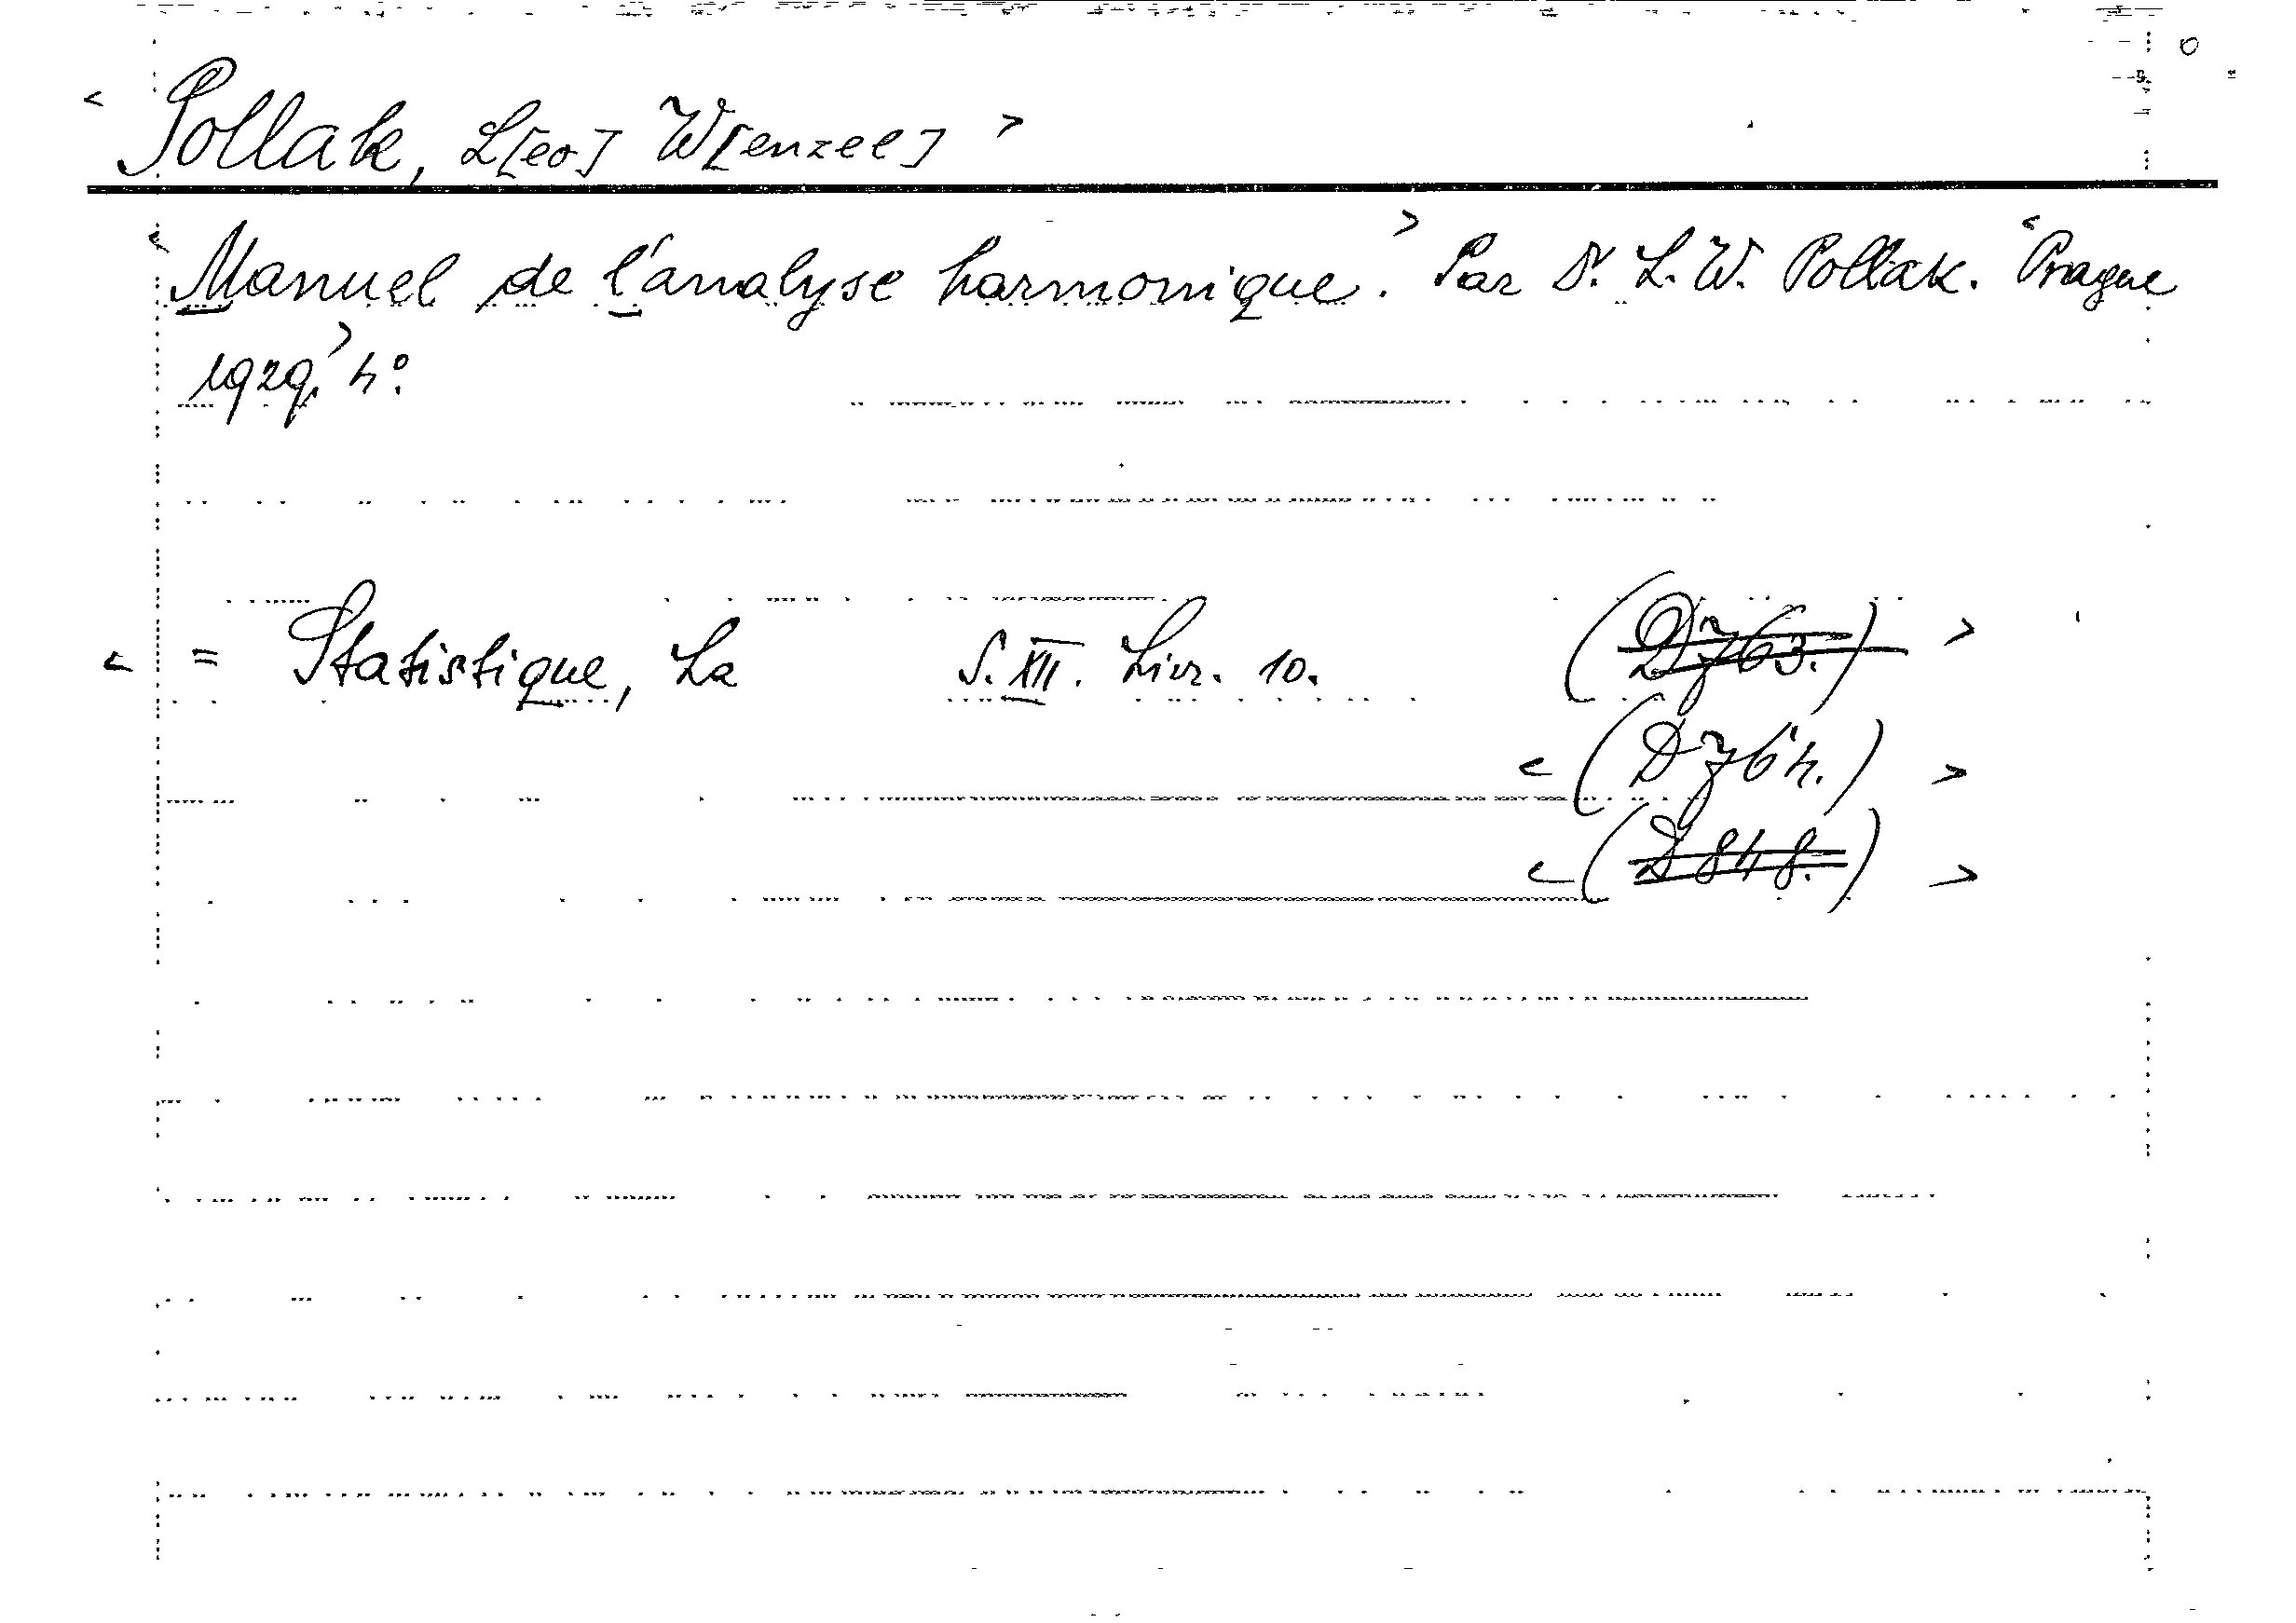 < Pollak, L[eo] W[enzel] >
< Manuel de l'analyse harmonique. > Par Dr. L. W. Pollak. < Prague
1929. > 4°.
< = Statistique, La S. XII. Livr. 10. (D 763.) >
< (D 764.) >
< (D 848.) >